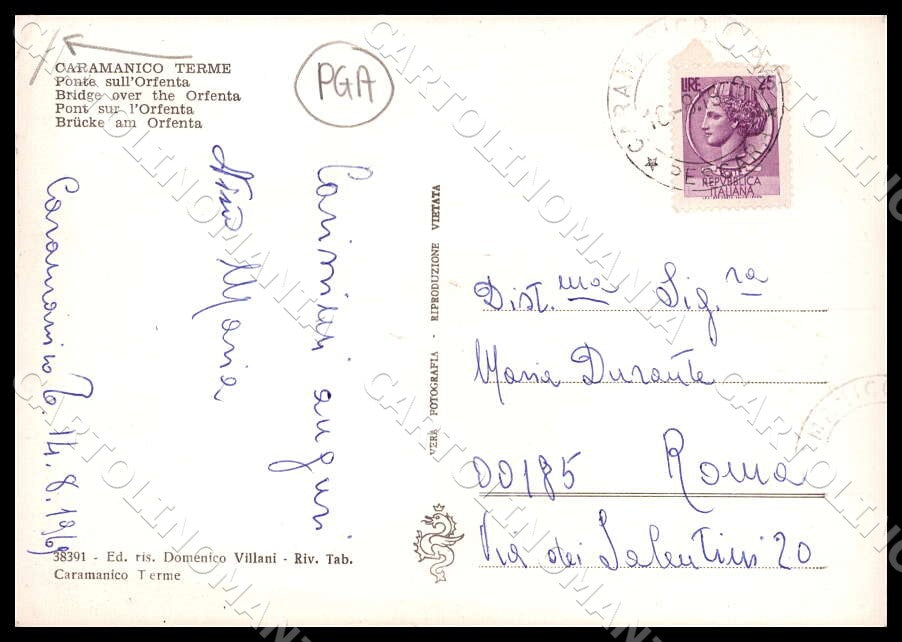 CARAMANICO TERME
Ponte sull'Orfenta
Bridge over the Orfenta
Pont sur l'Orfenta
Brücke am Orfenta
PGA
Carissimi auguri
Maria
Caramanico T. 14.8.1969
38391 - Ed. ris. Domenico Villani - Riv. Tab.
Caramanico Terme
VERA FOTOGRAFIA - RIPRODUZIONE VIETATA
LIRE 25
REPVBBLICA
ITALIANA
CARAMANICO
PESCARA
Dist.ma Sig.ra
Maria Durante
00185 Roma
Via dei Salentini 20
CARTOLINOMANIA